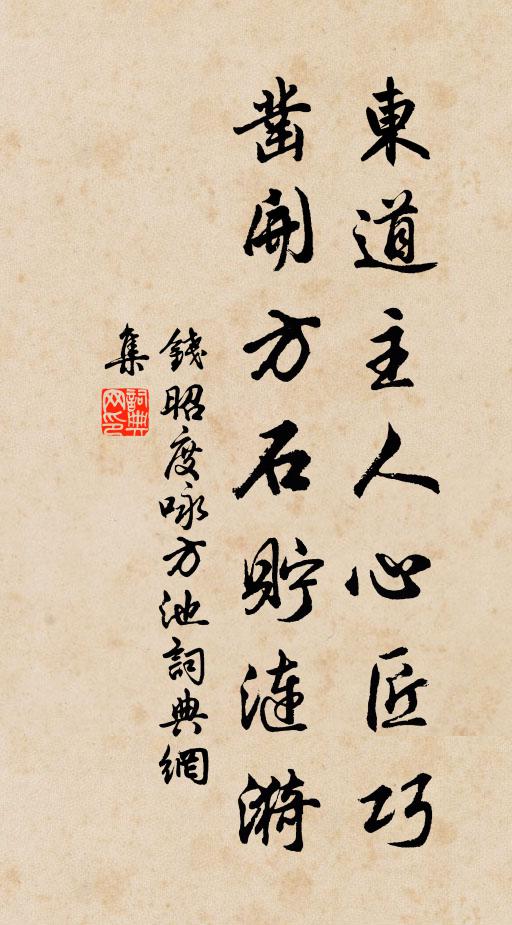 東道主人心匠巧
凿開方石貯漣漪
錢昭度咏方池詞典網
集
詞典
网印